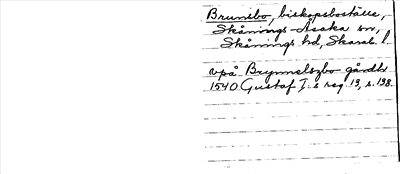 Brunsbo, biskopsboställe,
Skånings-Åsaka sn,
Skånings hd, Skarab. l.
upå Brynnelszbo gårdh
1540 Gustaf I:s reg. 13, s. 198.